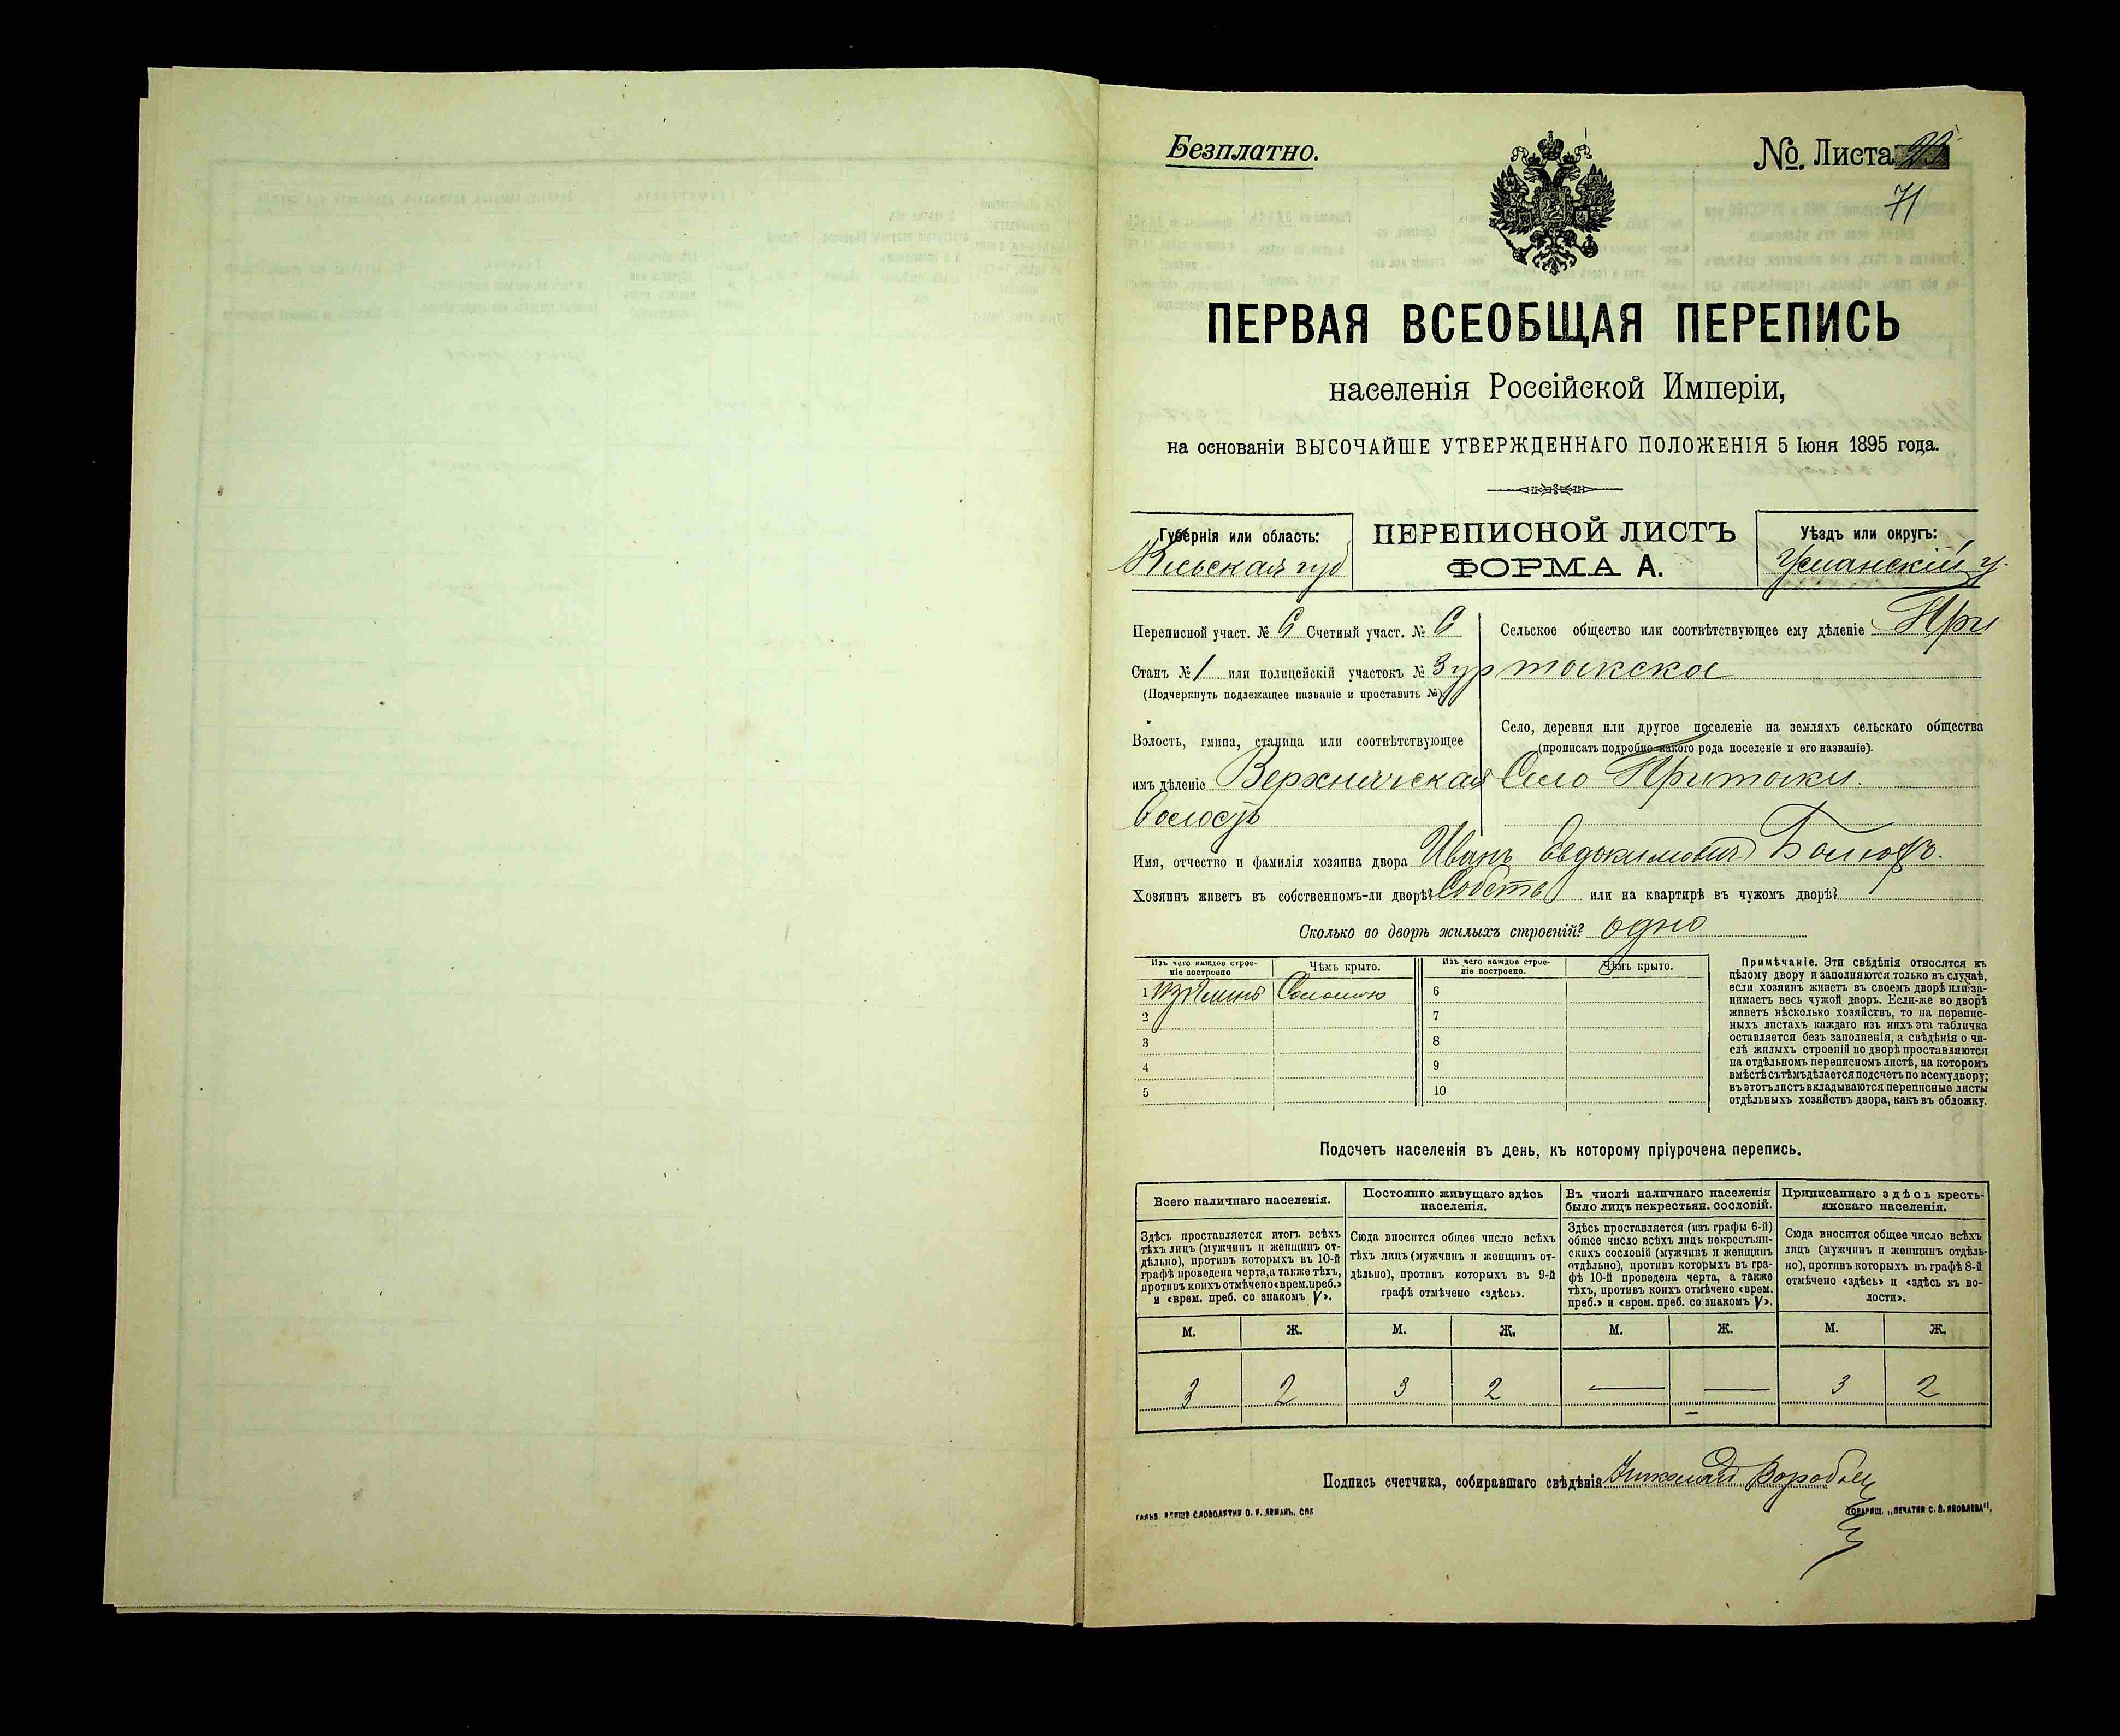 Безплатно.
№ Листа
71
ПЕРВАЯ ВСЕОБЩАЯ ПЕРЕПИСЬ
населенія Россійской Имперіи,
на основаніи ВЫСОЧАЙШЕ УТВЕРЖДЕННАГО ПОЛОЖЕНІЯ 5 Іюня 1895 года.
Губернія или область:
Кіевская губ
ПЕРЕПИСНОЙ ЛИСТЪ
ФОРМА А.
Уѣздъ или округъ:
Уманскій у.
Переписной участ. № 6 Счетный участ. № 6
Станъ № 1 или полицейскій участокъ № 3 ур
(Подчеркнуть подлежащее названіе и проставить №)
Волость, гмина, станица или соотвѣтствующее
имъ дѣленіе Верхнячская
Волость
Сельское общество или соотвѣтствующее ему дѣленіе При
токское
Село, деревня или другое поселеніе на земляхъ сельскаго общества
(прописать подробно какого рода поселеніе и его названіе).
Село Притоки.
Имя, отчество и фамилія хозяина двора Иванъ Евдокимовичъ
Хозяинъ живетъ въ собственномъ-ли дворѣ? Собств или на квартирѣ въ чужомъ дворѣ?
Сколько во дворѣ жилыхъ строеній? одно
Изъ чего каждое строеніе построено
Чѣмъ крыто.
Изъ чего каждое строеніе построено.
Чѣмъ крыто.
1 Соломою
2
3
4
5
6
7
8
9
10
Примѣчаніе. Эти свѣдѣнія относятся къ
цѣлому двору и заполняются только въ случаѣ,
если хозяинъ живетъ въ своемъ дворѣ или за-
нимаетъ весь чужой дворъ. Если-же во дворѣ
живетъ нѣсколько хозяйствъ, то на перепис-
ныхъ листахъ каждаго изъ нихъ эта табличка
оставляется безъ заполненія, а свѣдѣнія о чи-
слѣ жилыхъ строеній во дворѣ проставляются
на отдѣльномъ переписномъ листѣ, на которомъ
вмѣстѣ съ тѣмъ дѣлается подсчетъ по всему двору;
въ этотъ листъ вкладываются переписные листы
отдѣльныхъ хозяйствъ двора, какъ въ обложку.
Подсчетъ населенія въ день, къ которому пріурочена перепись.
Всего наличнаго населенія.
Постоянно живущаго здѣсь
населенія.
Въ числѣ наличнаго населенія
было лицъ некрестьян. сословій.
Приписаннаго здѣсь кресть-
янскаго населенія.
Здѣсь проставляется итогъ всѣхъ
тѣхъ лицъ (мужчинъ и женщинъ от-
дѣльно), противъ которыхъ въ 10-й
графѣ проведена черта, а также тѣхъ,
противъ коихъ отмѣчено «врем. преб.»
и «врем. преб. со знакомъ V».
Сюда вносится общее число всѣхъ
тѣхъ лицъ (мужчинъ и женщинъ от-
дѣльно), противъ которыхъ въ 9-й
графѣ отмѣчено «здѣсь».
Здѣсь проставляется (изъ графы 6-й)
общее число всѣхъ лицъ некрестьян-
скихъ сословій (мужчинъ и женщинъ
отдѣльно), противъ которыхъ въ гра-
фѣ 10-й проведена черта, а также
тѣхъ, противъ коихъ отмѣчено «врем.
преб.» и «врем. преб. со знакомъ V».
Сюда вносится общее число всѣхъ
лицъ (мужчинъ и женщинъ отдѣль-
но), противъ которыхъ въ графѣ 8-й
отмѣчено «здѣсь» и «здѣсь къ во-
лости».
М. Ж. М. Ж. М. Ж. М. Ж.
3 2 3 2 — — 3 2
Подпись счетчика, собиравшаго свѣдѣнія Николай
ТОВАРИЩ. „ПЕЧАТНЯ С. П. ЯКОВЛЕВА".